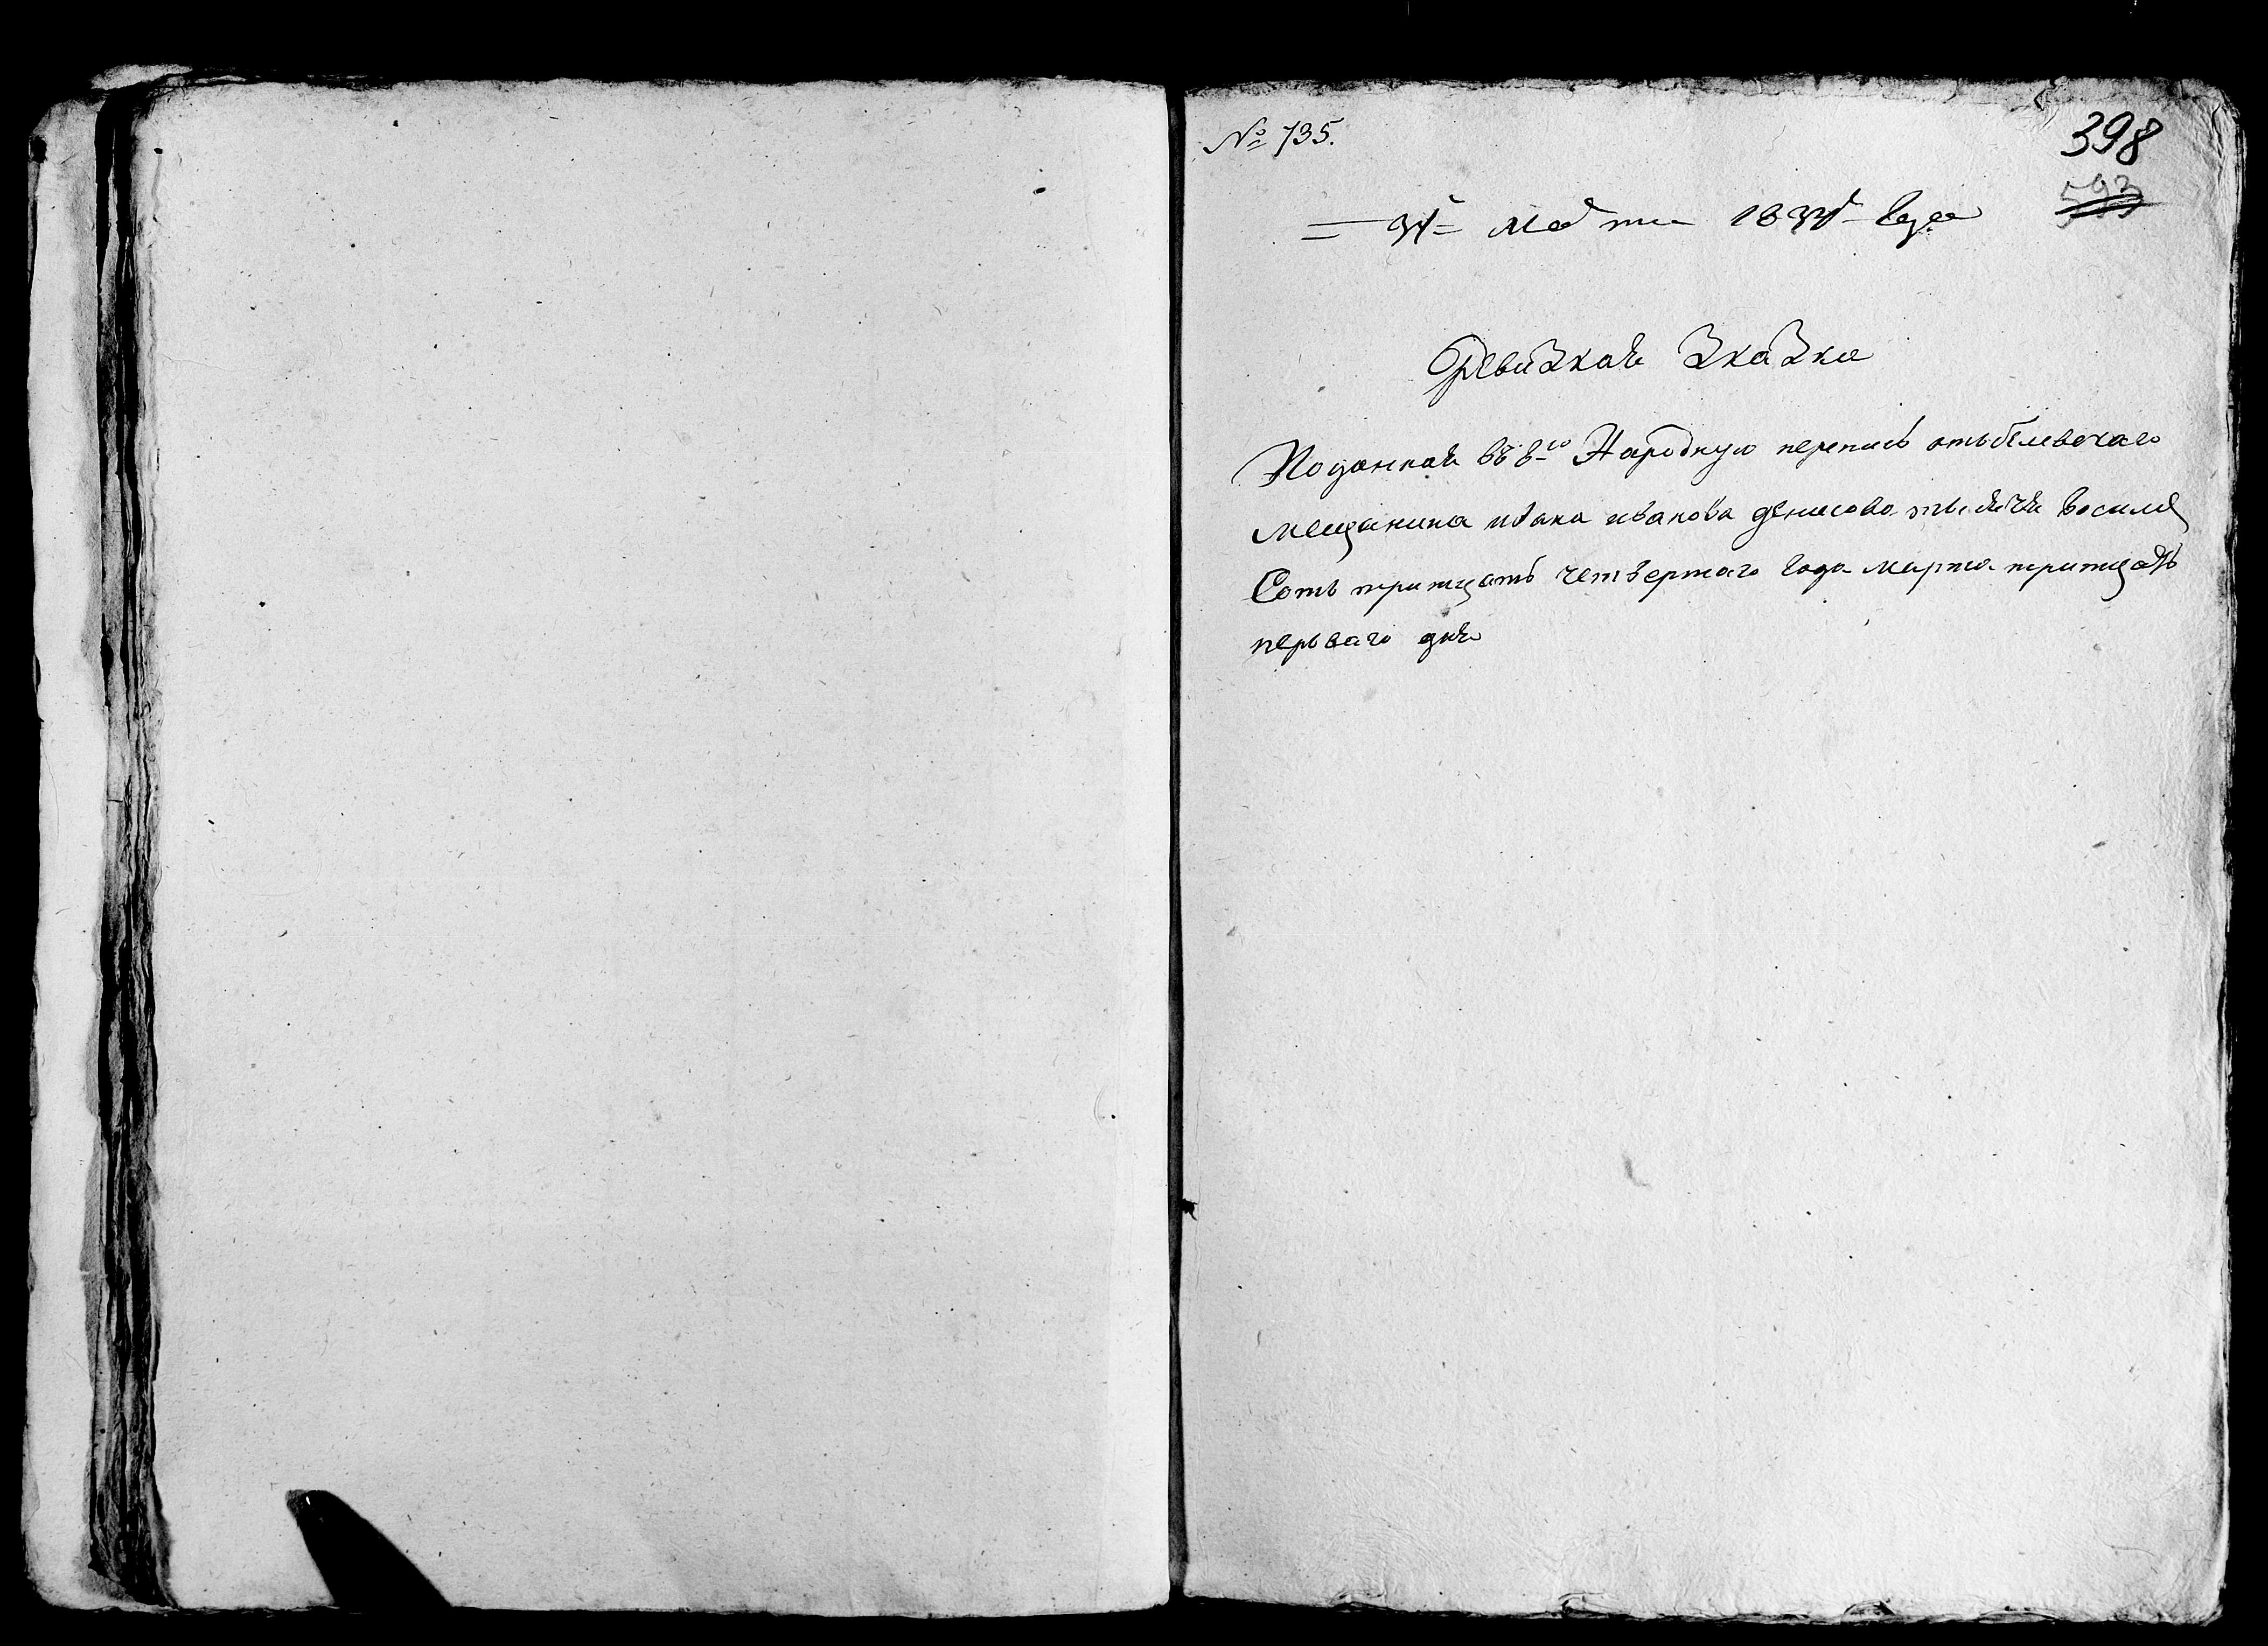 № 135.
398
593
31 Марта 1834 года
Ревизкая Зказка
Поданная въ 8ю Народную перепись отъ белевскаго
мещанина ивана иванова денисова тысяча восемь
Сотъ тритцать четвертаго года марта тритцать
перьваго дня